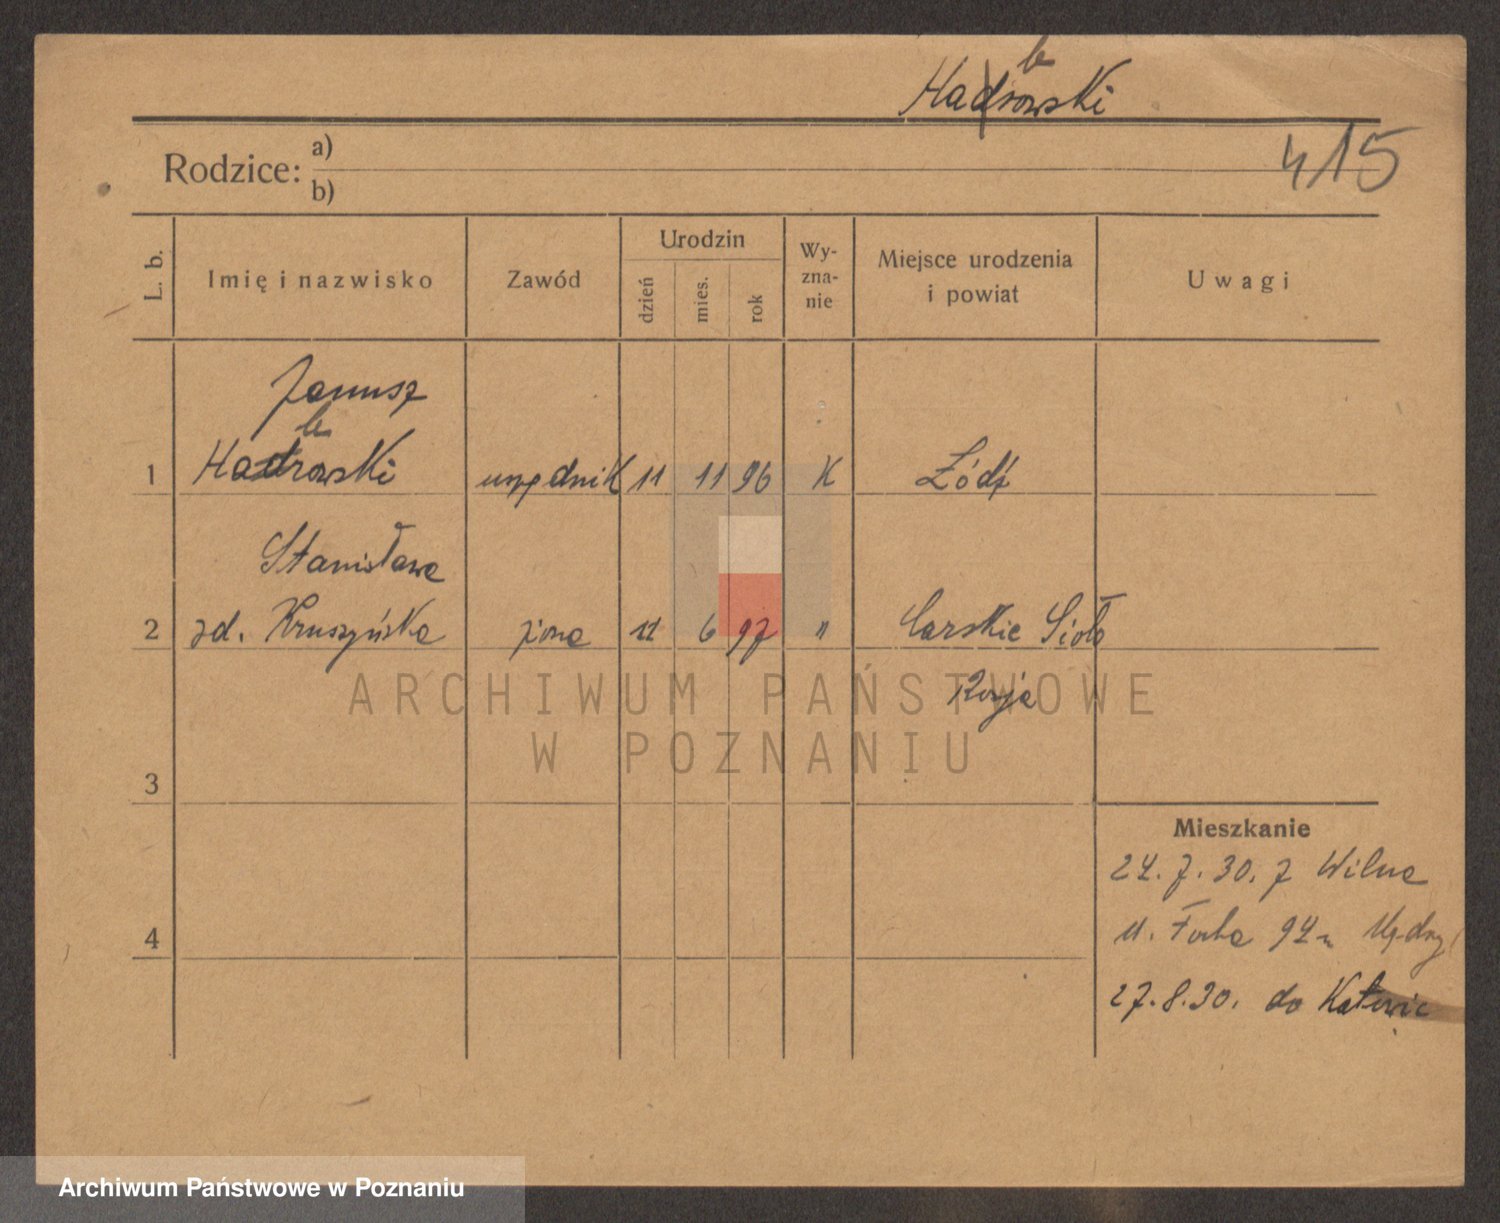 b
Hadrowski
415
Rodzice: a)
b)
L. b.
Imię i nazwisko
Zawód
Urodzin
dzień
mies.
rok
Wy-
zna-
nie
Miejsce urodzenia
i powiat
Uwagi
Janusz
b
1 Hadrowski urzędnik 11 11 96 K Łódź
Stanisława
2 zd. Kruszyńska żona 11 6 97 " Carskie Sioło
Rosja
ARCHIWUM PAŃSTWOWE
W POZNANIU
3
Mieszkanie
24.7.30. z Wilna
4
27.8.30. do Katowic
Archiwum Państwowe w Poznaniu